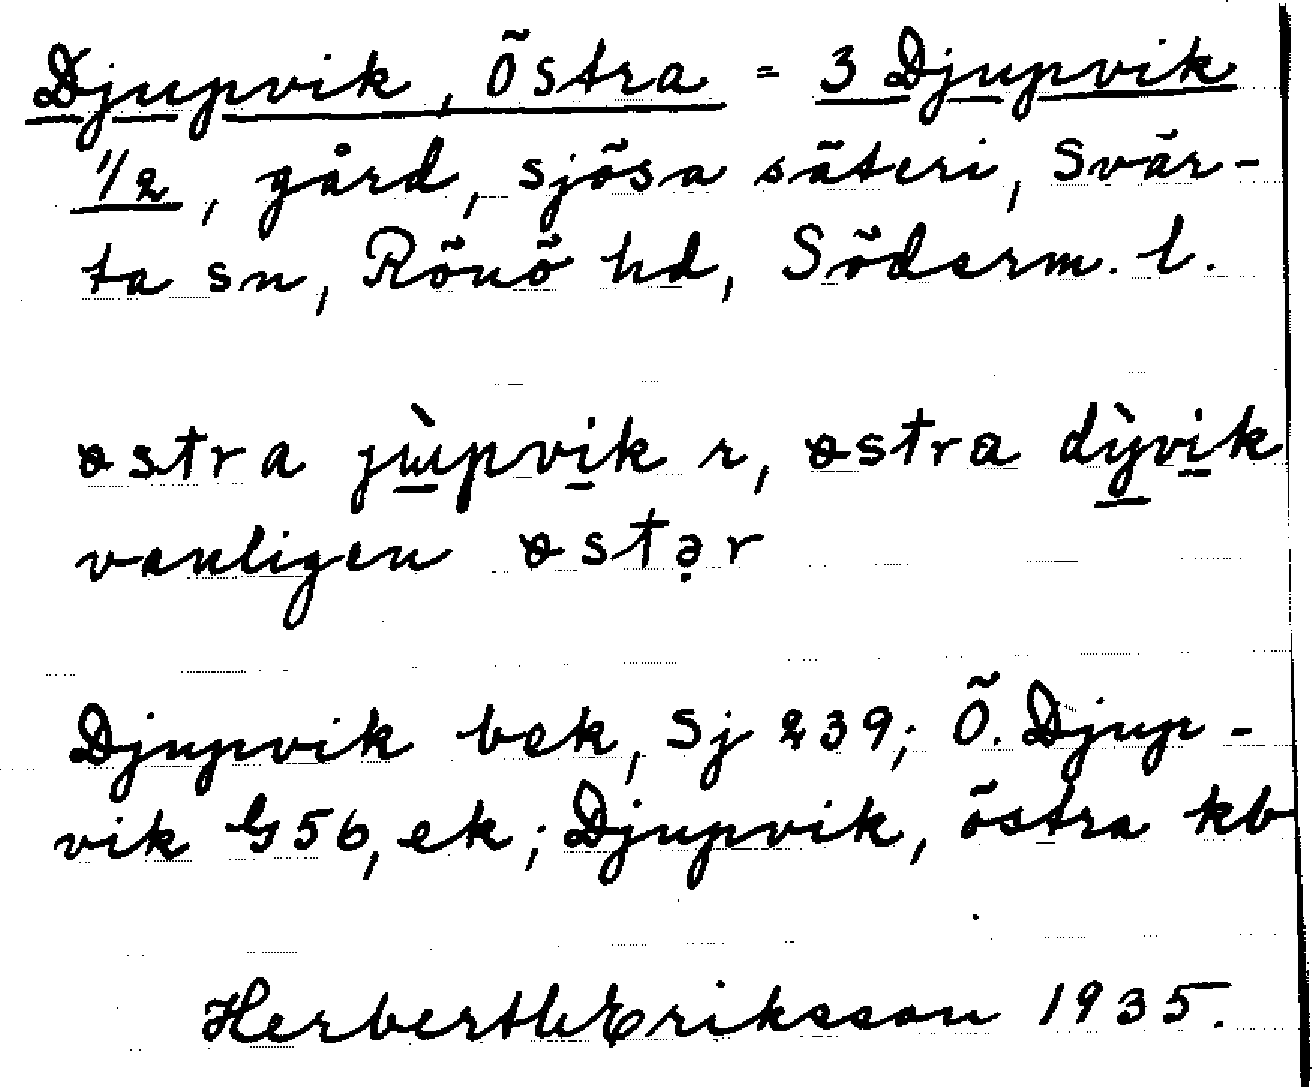 Djupvik, Östra = 3 Djupvik
1/2, gård, sjösa säteri, Svär-
ta sn, Rönö hd, Söderm. l.
østra jɯ̀pvik r, østra dỳvik
vanligen østər
Djupvik bek, Sj 239; Ö. Djup-
vik G56, ek; Djupvik, östra kb
Herbert Eriksson 1935.